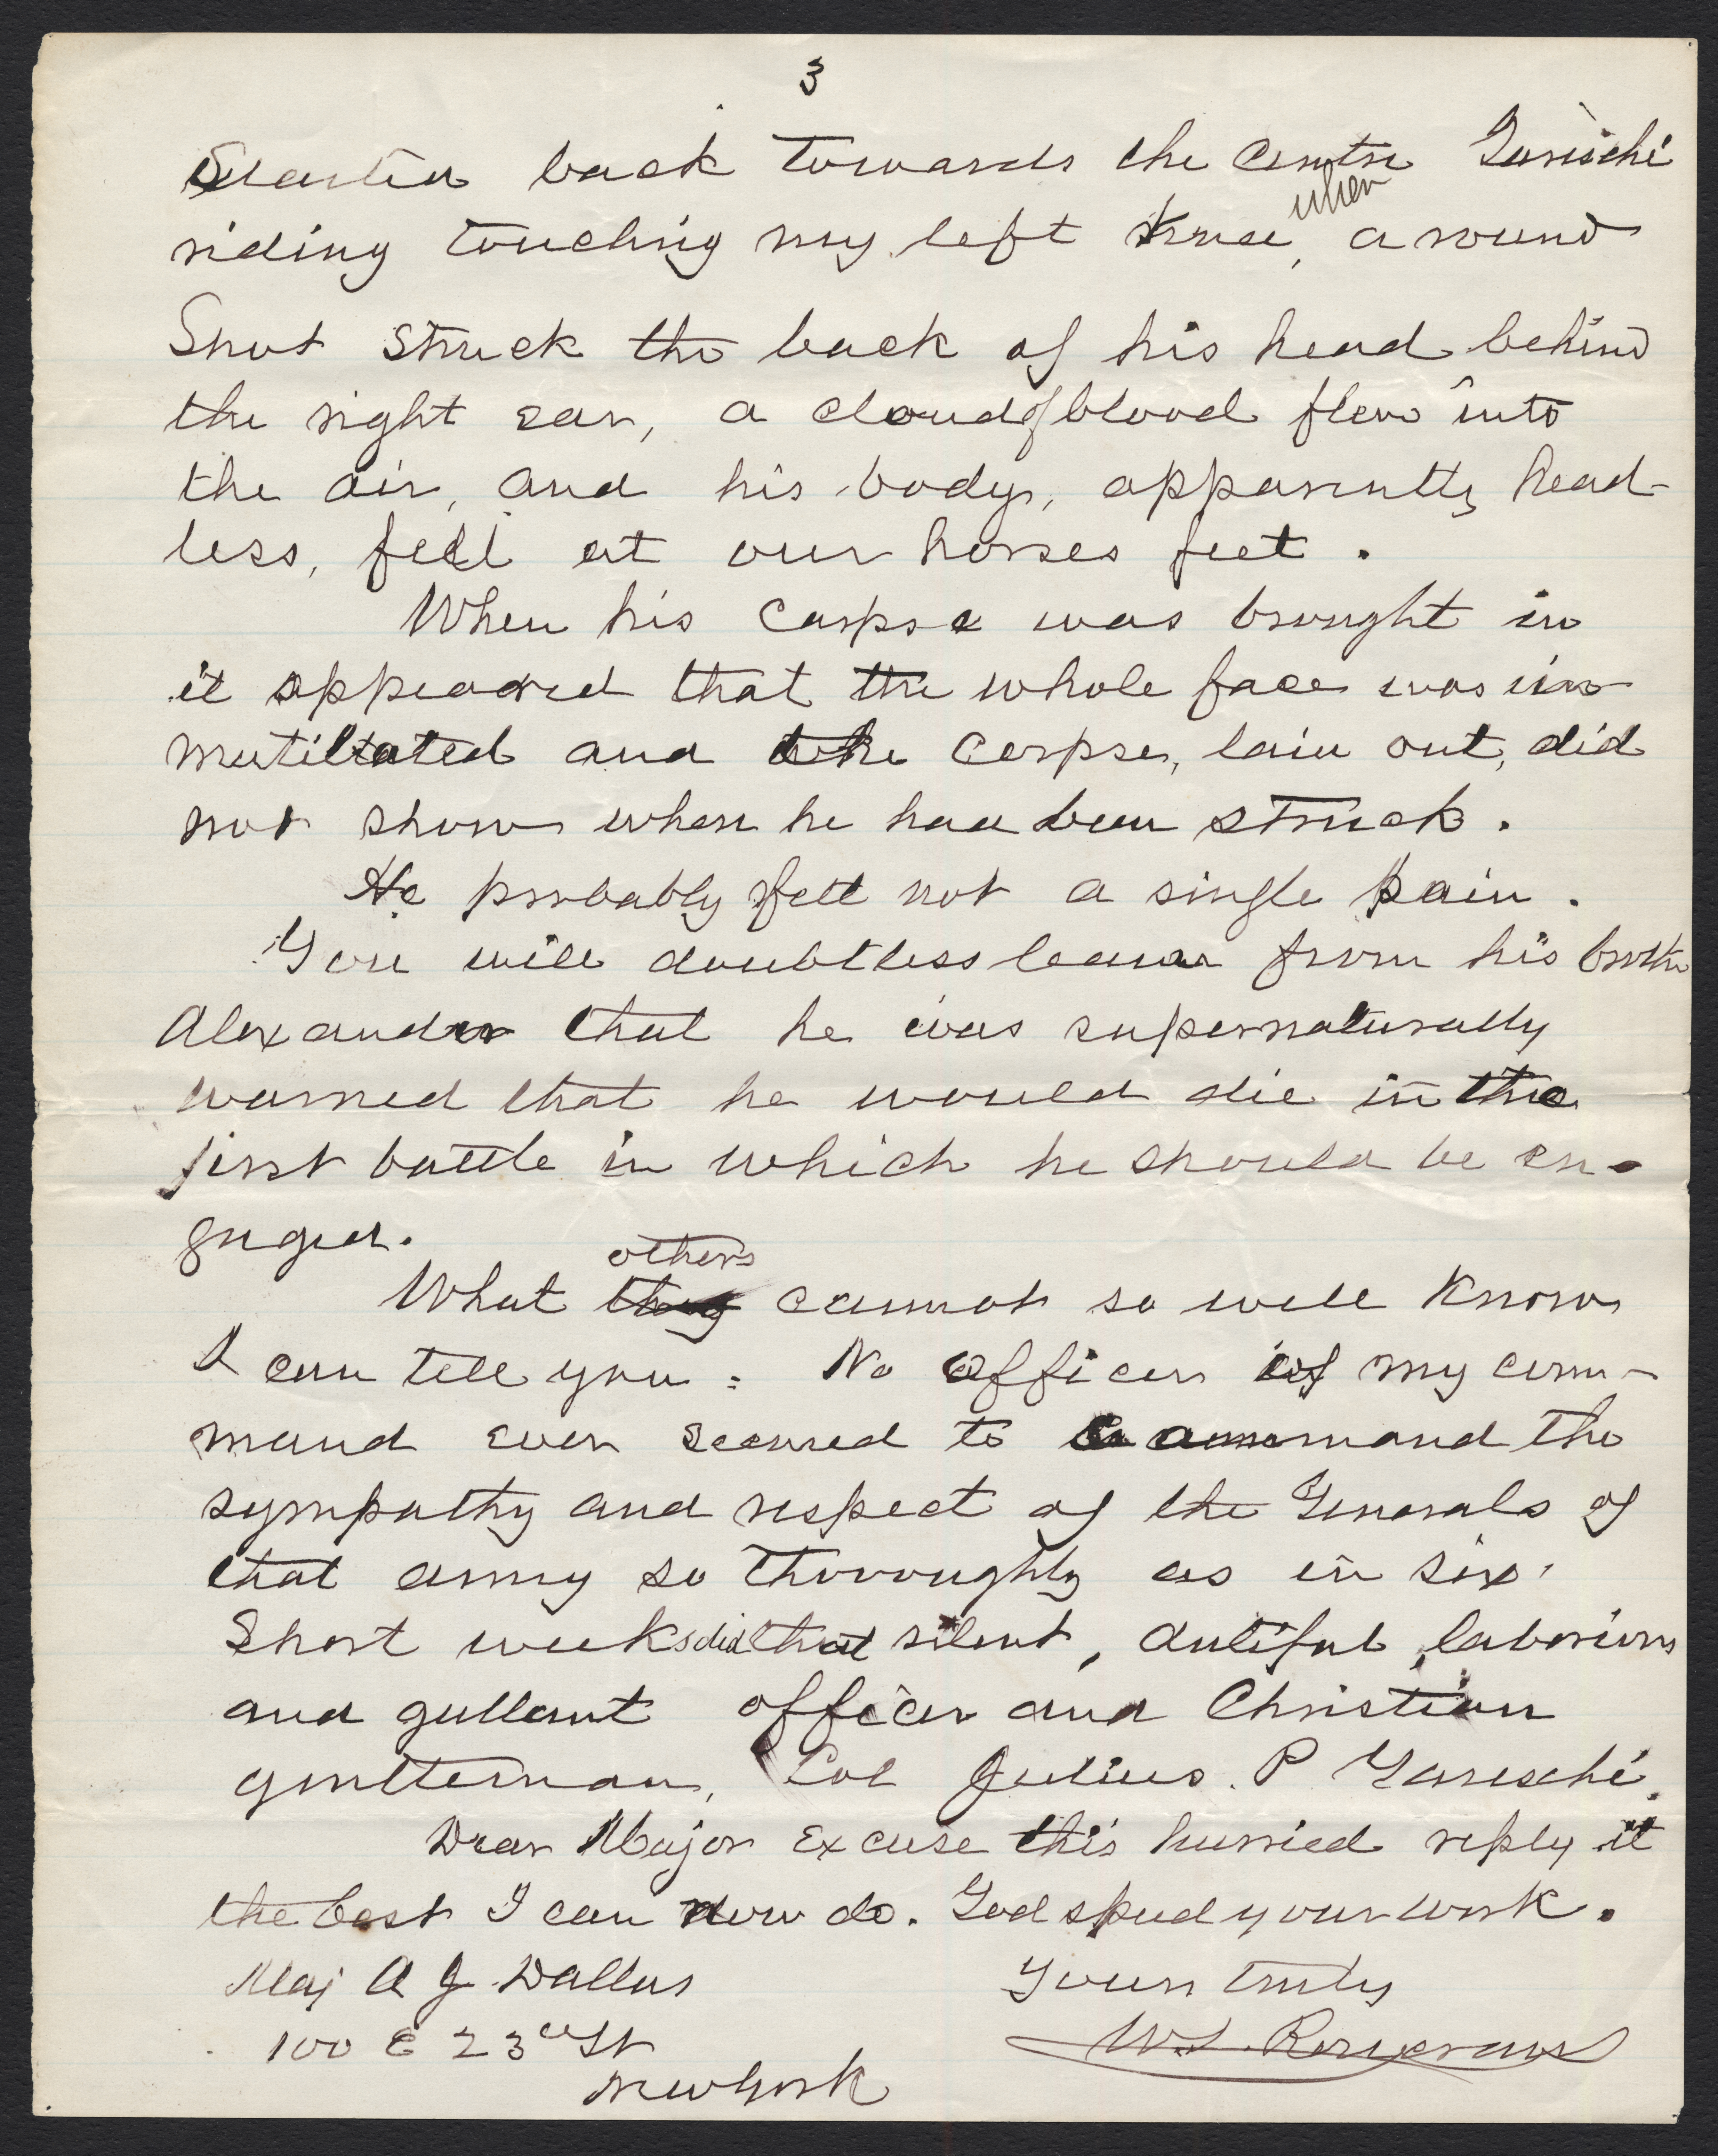 3
Started back towards the centre Garesché
riding touching my left knee, when a round
Shot struck the back of his head behind
the right ear, a cloud of blood flew into
the air, and his body, apparently head-
less, fell at our horses feet.
When his corpse was brought in
it appeared that the whole face was un
mutilated and the corpse, lain out, did
not show where he had been struck.
He probably felt not a single pain.
You will doubtless learn from his brother
Alexander that he was supernaturally
warned that he would die in the
first battle in which he should be en-
gaged.
What they others cannot so well know
I can tell you: No officer of my com-
mand ever seemed to command the
sympathy and respect of the Generals of
that army so thoroughly as in six
Short weeks did that silent, dutiful, laborious
and gallant officer and Christian
gentleman, Col Julius. P Garesché.
Dear Major Excuse this hurried reply it
the best I can now do. God speed your work.
Maj A J Dallas
Yours truly
100 E 23rd St
W.S. Rosecrans
New York